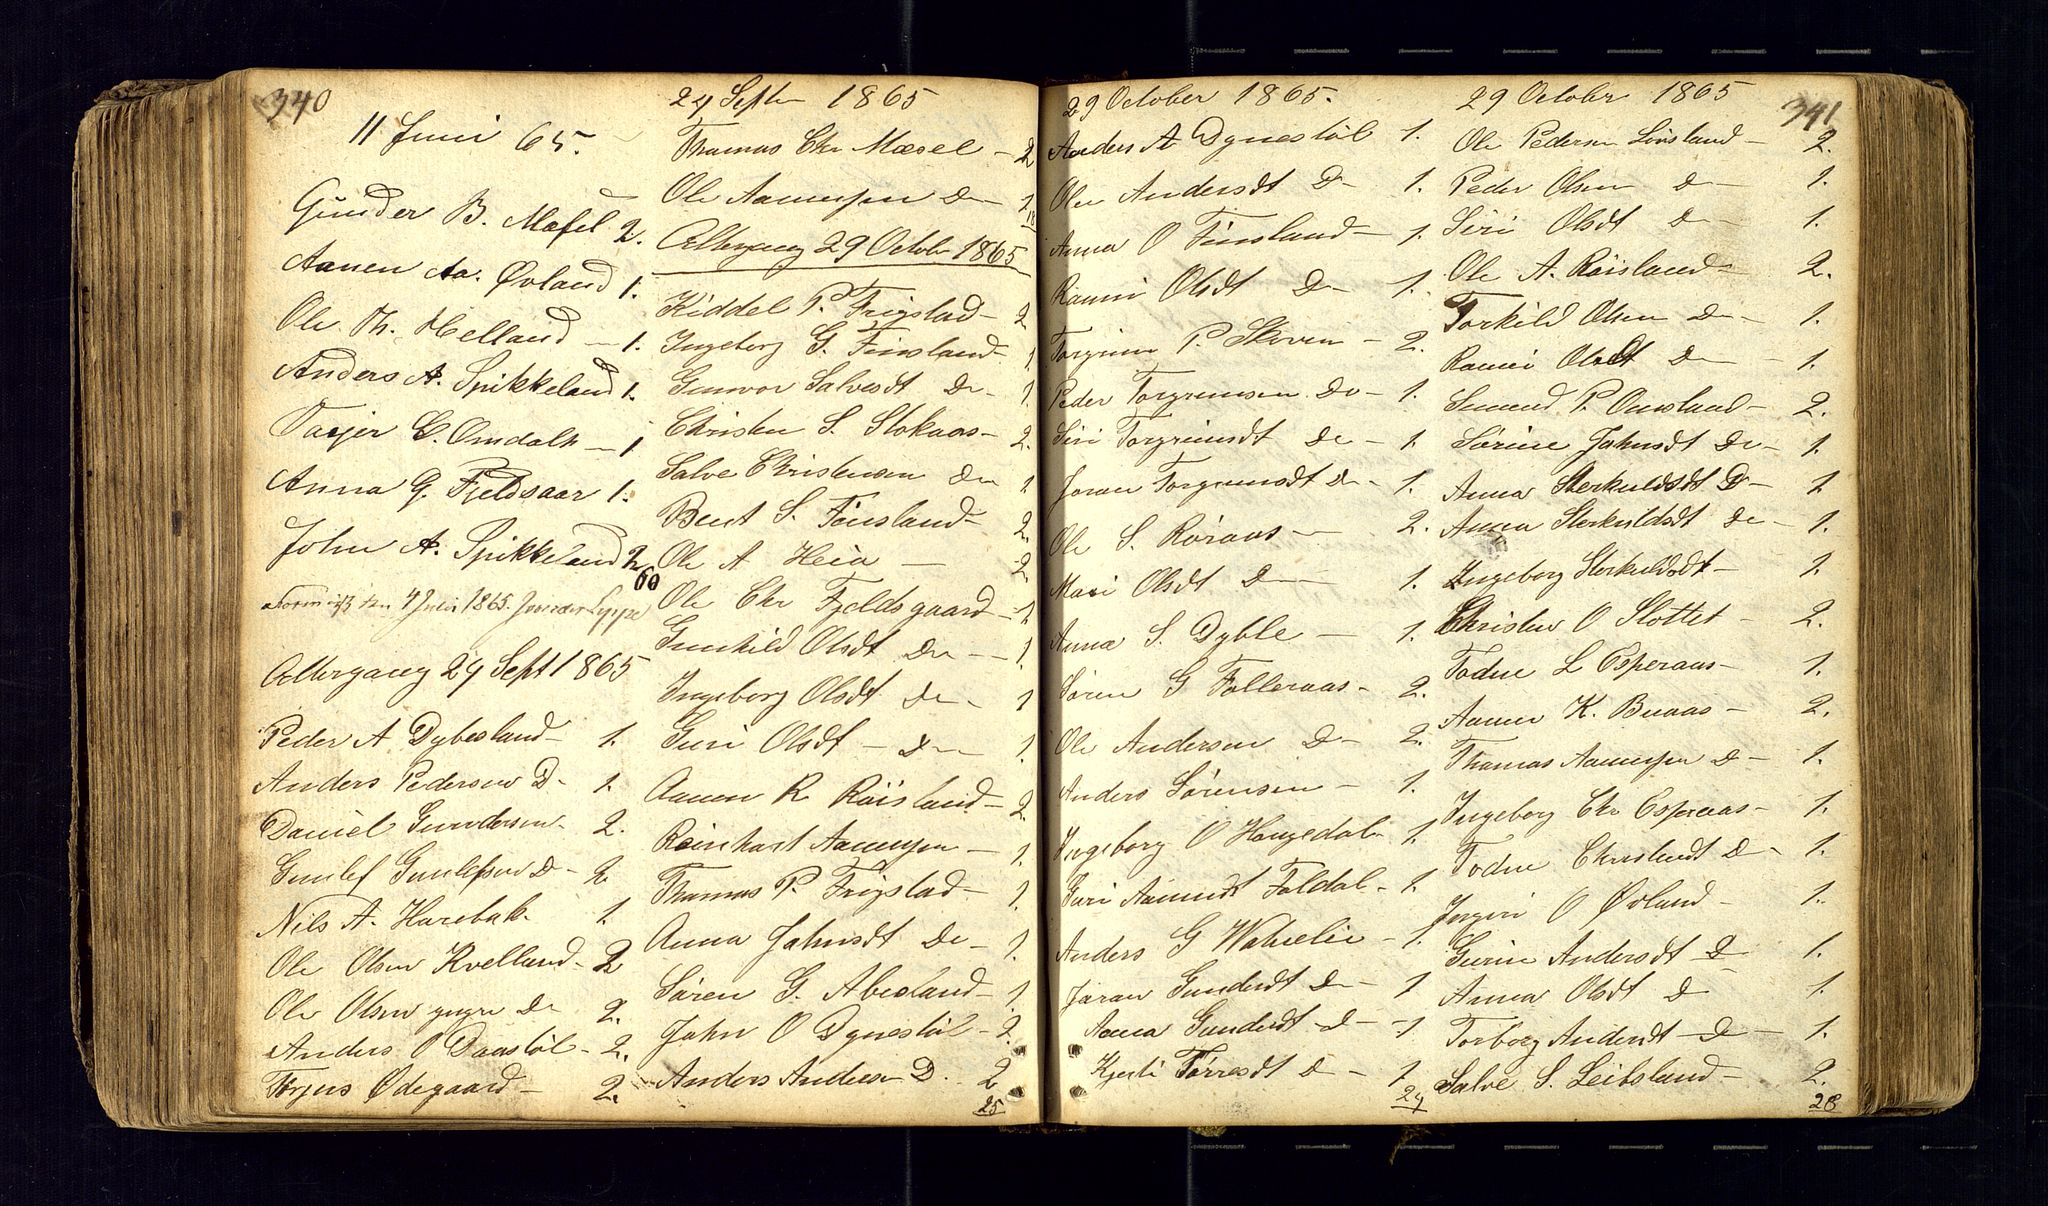 340
11 Juni 65.
Gunder B. Mosel 2.
Aanen Aa. Øvland 1.
Ole Th. Helland - 1.
Anders A. Spikkeland 1.
Tarjer G. Omdalh - 1
Anna G. Fjeldsaar 1.
John A. Spikkeland 2
60
den 4 Juli 1865.
Altergang 24 Sept 1865
Peder A Dybesland - 1.
Anders Pedersen D - 1.
Daniel Gundersen - 2.
Gunlef Gunlefsen D - 2.
Nils A. Harebak 1.
Ole Olsen Kvelland - 2
Ole Olsen yngre D 2.
Anders O Daastøl - 2.
Tørjus Ødegaard - 2.
24 Septr 1865
Thomas Chr Mæsel - 2
Ole Aanensen D - 2
18
Altergang 29 Octobr 1865
Kiddel P. Frigstad - 2
Ingeborg G. Finsland - 1
Gunvor Salvesdt Do - 1.
Christen S. Stokaas - 2.
Salve Christensen Do 1
Bent S. Finsland - 2.
Ole A Heia - 2
Ole Chr Fjeldsgaard - 2
Gunhild Olsdt Do - 1
Ingeborg Olsdt Do - 1
Guri Olsdt - Do - 1.
Aanen R Røisland - 2.
Reinhart Aanensen - 1.
Thomas P. Frigstad - 1.
Anna Jahnsdt Do - 1.
Søren G. Abesland - 1.
John O Dynestøl - 2.
Anders Andersen D. 2
25
29 October 1865.
Anders A Dynestøl 1.
Ole Andersdt D - 1.
Anna O Finsland - 1.
Ranni Olsdt D - 1.
Torgrim P. Skoven - 2.
Peder Torgrimsen Do - 1.
Siri Torgrimsdt Do - 1.
Joran Torgrimsdt Do - 1.
Ole S. Røraas - 2.
Mari Olsdt D - 1.
Anna S. Dyble - 1.
Søren G Folleraas - 2.
Ole Andersen D - 2.
Anders Sørensen - 1.
Ingeborg O Haugedal 1.
Guri Aamundt Foldal - 1.
Anders G Watnelie - 1.
Joran Gundersdt D - 1
Anna Gundersdt D - 1
Kjersti Tørresdt D - 1
24
29 Octobr 1865
341
Ole Pedersen Lonsland - 2.
Peder Olsen D - 1.
Siri Olsdt D - 1.
Ole A. Røisland - 2.
Torkild Olsen D - 1.
Ranni Olsdt D - 1.
Omund P. Omsland - 2.
Sørine Jahnsdt Do - 1.
Anna Sterkuldsdt D - 1.
Anna Sterkuldsdt Do - 1.
Ingeborg Sterkuldsdt - 1.
Christen O Slottet - 2.
Todne L Esperaas - 1.
Aanen K. Buaas - 2.
Thomas Aanensen D - 1.
Ingeborg Chr Esperaas - 1.
Todne Christendt D - 1.
Ingeri O Øvland - 1.
Gurine Andersdt D 1.
Anna Olsdt D 1.
Torborg Andersdt - D - 1.
Salve S. Leibsland - 2.
28